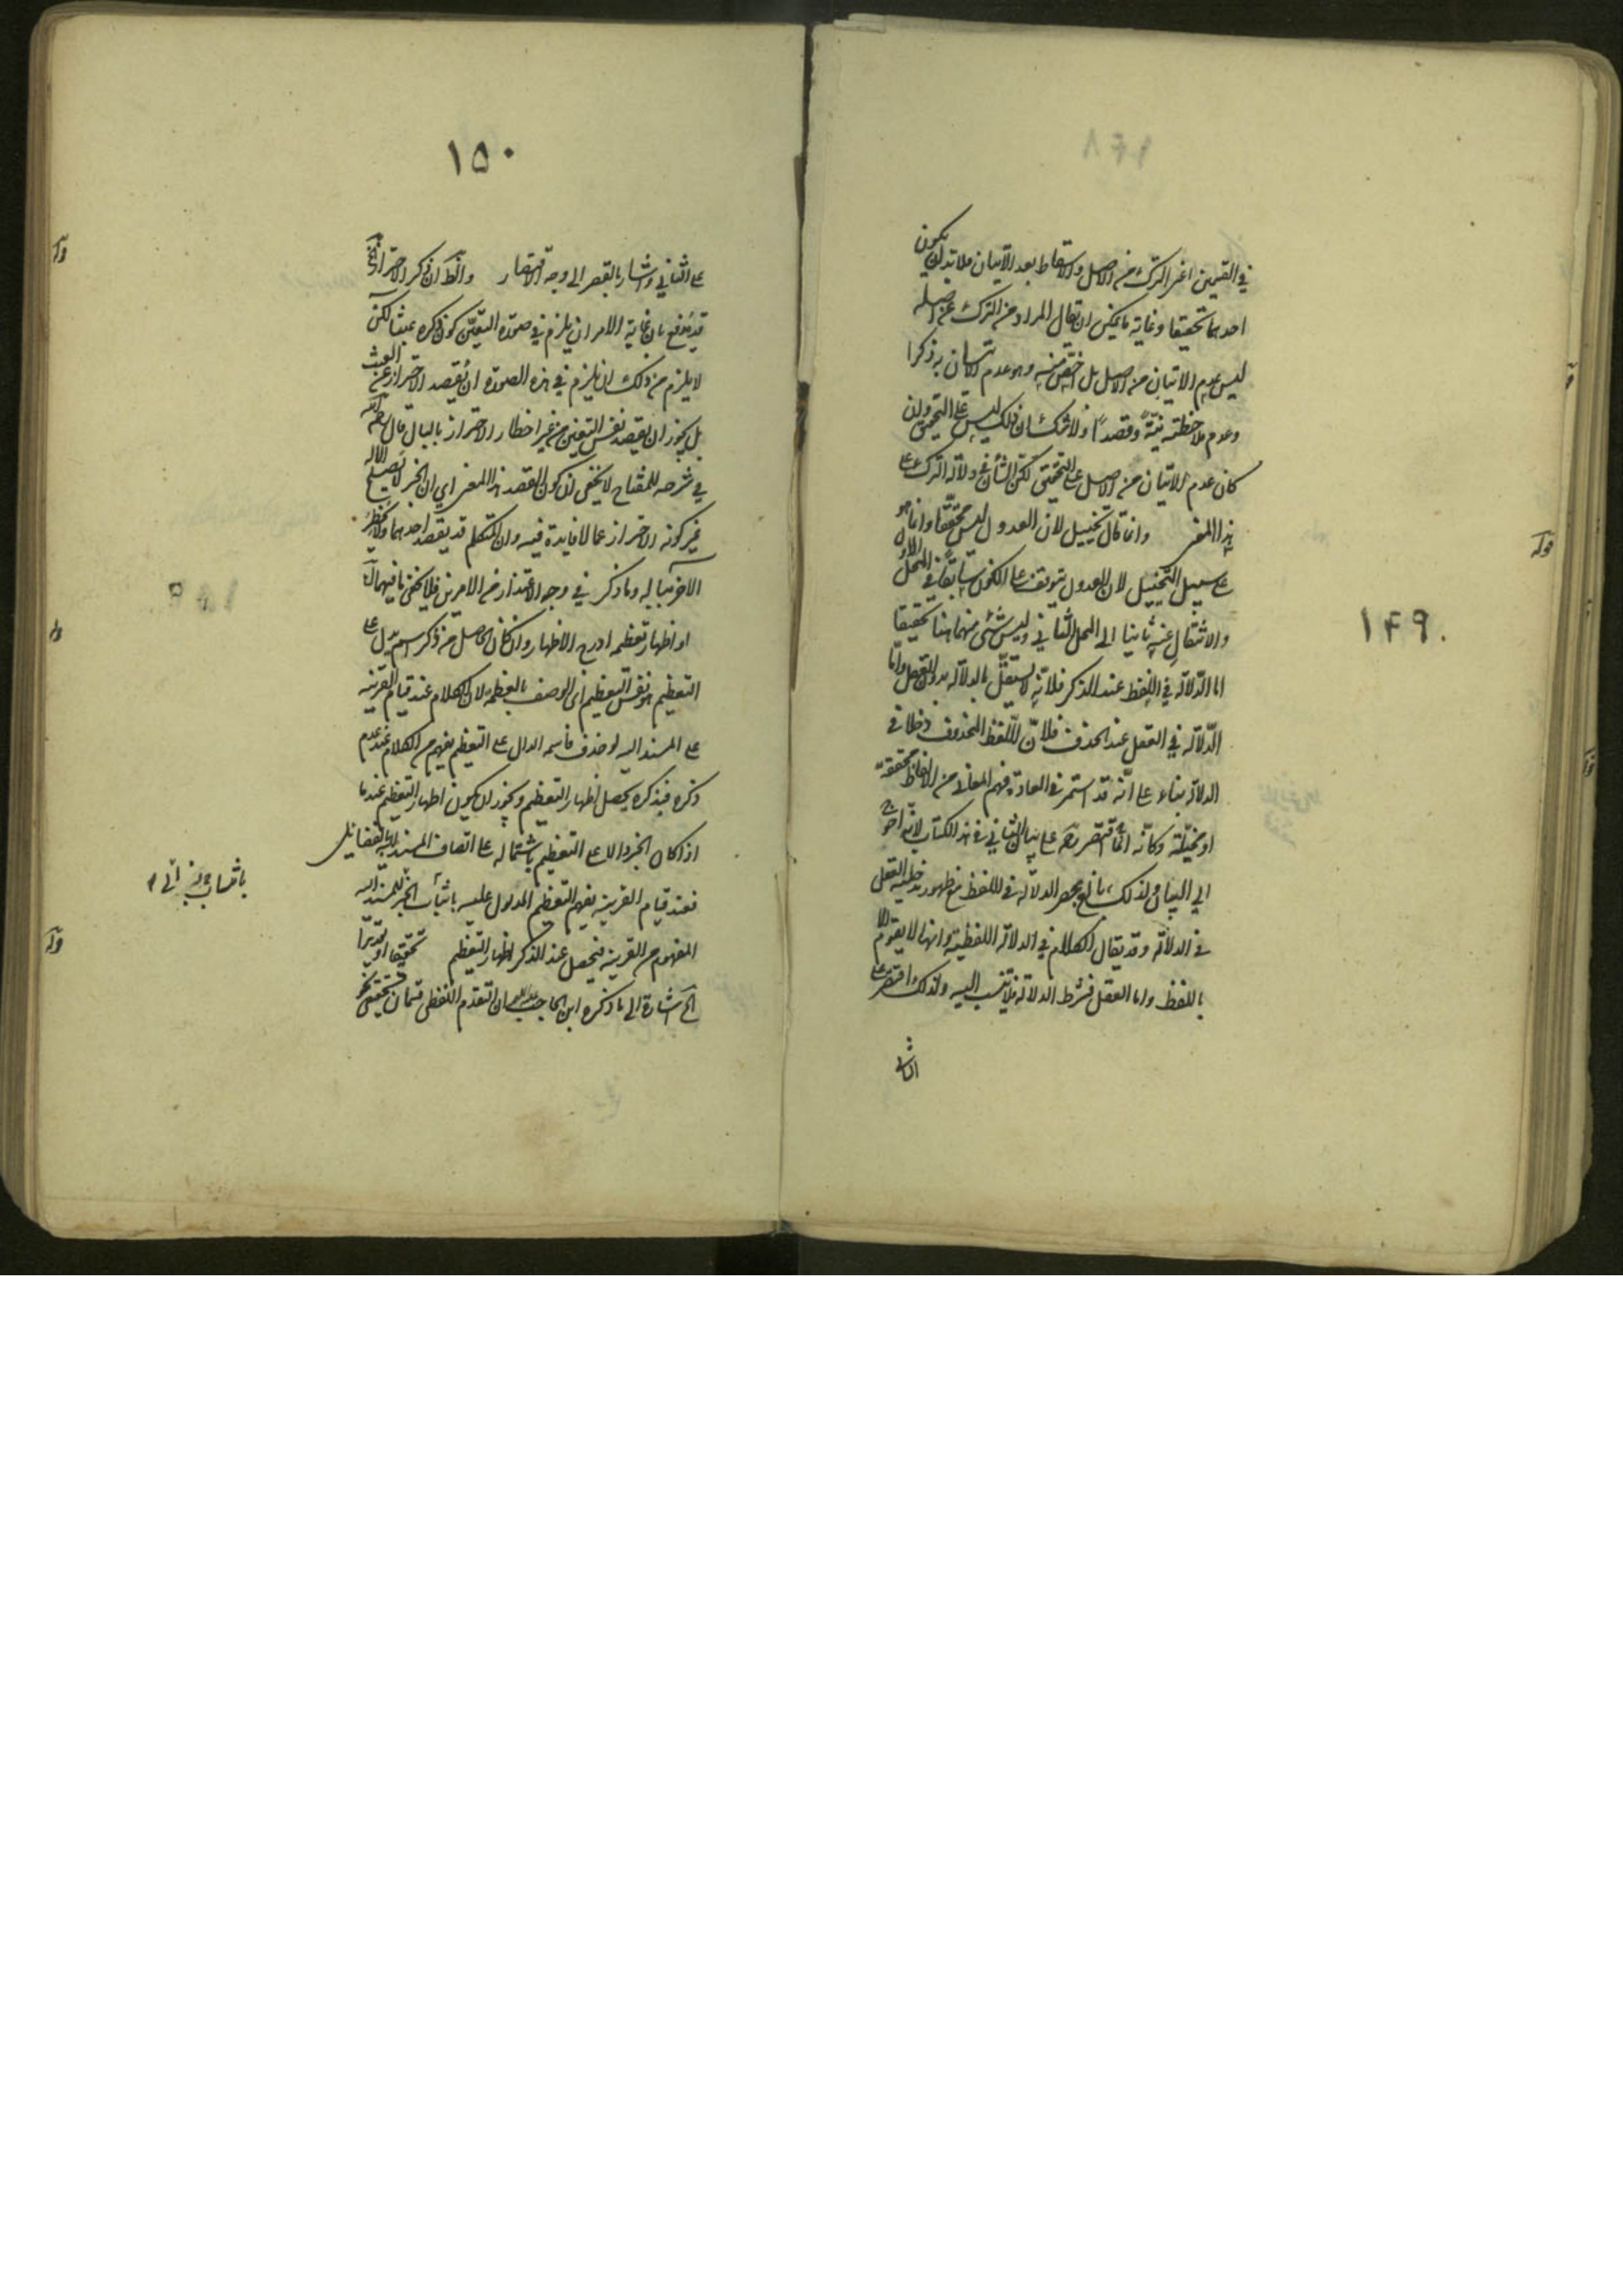 في القسمين اعني الترك من الاصل والاسقاط بعد الاتيان فلا بد ان يكون
احدهما تحقيقا وغاية ما يمكن ان يقال المراد من الترك عن اصله
ليس عدم الاتيان من الاصل بل اخص منه وهو عدم الاتيان به ذكرا
وعدم ملاحظته نية وقصدا ولا شك ان ذلك ليس على التحقيق وان
كان عدم الاتيان من الاصل على التحقيق لكن الشأن في دلالة الترك على
هذا المعنى وانما قال تخييل لان العدول ليس محققا وانما هو
على سبيل التخييل لان العدول يتوقف على الكون سابقا في المحل الاول
والانتقال عنه ثانيا الى المحل الثاني وليس شئ منهما هنا تحقيقا
اما الدلالة في اللفظ عند الذكر فلانه لا يستقل بالدلالة بدون العقل واما
الدلالة في العقل عند الحذف فلان للفظ المحذوف دخلا في
الدلالة بناء على انه قد استمر في العادة فهم المعاني من الالفاظ محققة
او مخيلة وكانه انما اقتصر رحمه على بيان الثاني في هذا الكتاب لانه احوج
الى البيان ولذلك بالغ بحصر الدلالة في اللفظ مع ظهور مدخلية العقل
في الدلالة وقد يقال الكلام في الدلالة اللفظية وانها لا يقوم الا
باللفظ واما العقل فشرط الدلالة فلا تنسب اليه ولذلك اقتصر على
الثاني
١٤٩
١٥٠
على الثاني واشار بالقصر الى وجه الاقتصار والظ ان ذكر الاحتراز الخ
قد يدفع بان غاية الامر ان يلزم في صورة التعين كون ذكره عبثا لكن
لا يلزم من ذلك ان يلزم في هذه الصورة ان يقصد الاحتراز عن العبث
بل يجوز ان يقصد نفس التعين من غير اخطار الاحتراز بالبال قال
في شرحه للمفتاح لا يخفى ان كون القصد هذا المعنى اي ان الخبر لا يصلح الا له
غير كونه الاحتراز عما لا فايدة فيه وان المتكلم قد يقصد احدهما ولا يخطر
الاخر بباله وما ذكر في وجه الاعتذار من الامرين فلا يخفى ما فيهما
او اظهار تعظيمه ادرج الاظهار وان كان الحاصل من ذكر اسم يدل على
التعظيم هو نفس التعظيم اي الوصف بالعظمة لان الكلام عند قيام القرينة
على المسند اليه لو حذف فاسمه الدال على التعظيم يفهم من الكلام عند عدم
ذكره فبذكره يحصل اظهار التعظيم ويجوز ان يكون اظهار التعظيم عند ما
اذا كان الخبر دالا على التعظيم باشتماله على اتصاف المسند اليه بالفضايل
فعند قيام القرينة يفهم التعظيم المدلول عليه باثبات الخبر للمسند اليه
المفهوم من القرينة فيحصل عند الذكر اظهار التعظيم تحقيقا او تقديرا
الخ اشارة الى ما ذكره ابن الحاجب ان التقدم اللفظي قسمان تحقيقي
قوله
قوله
قوله
قوله